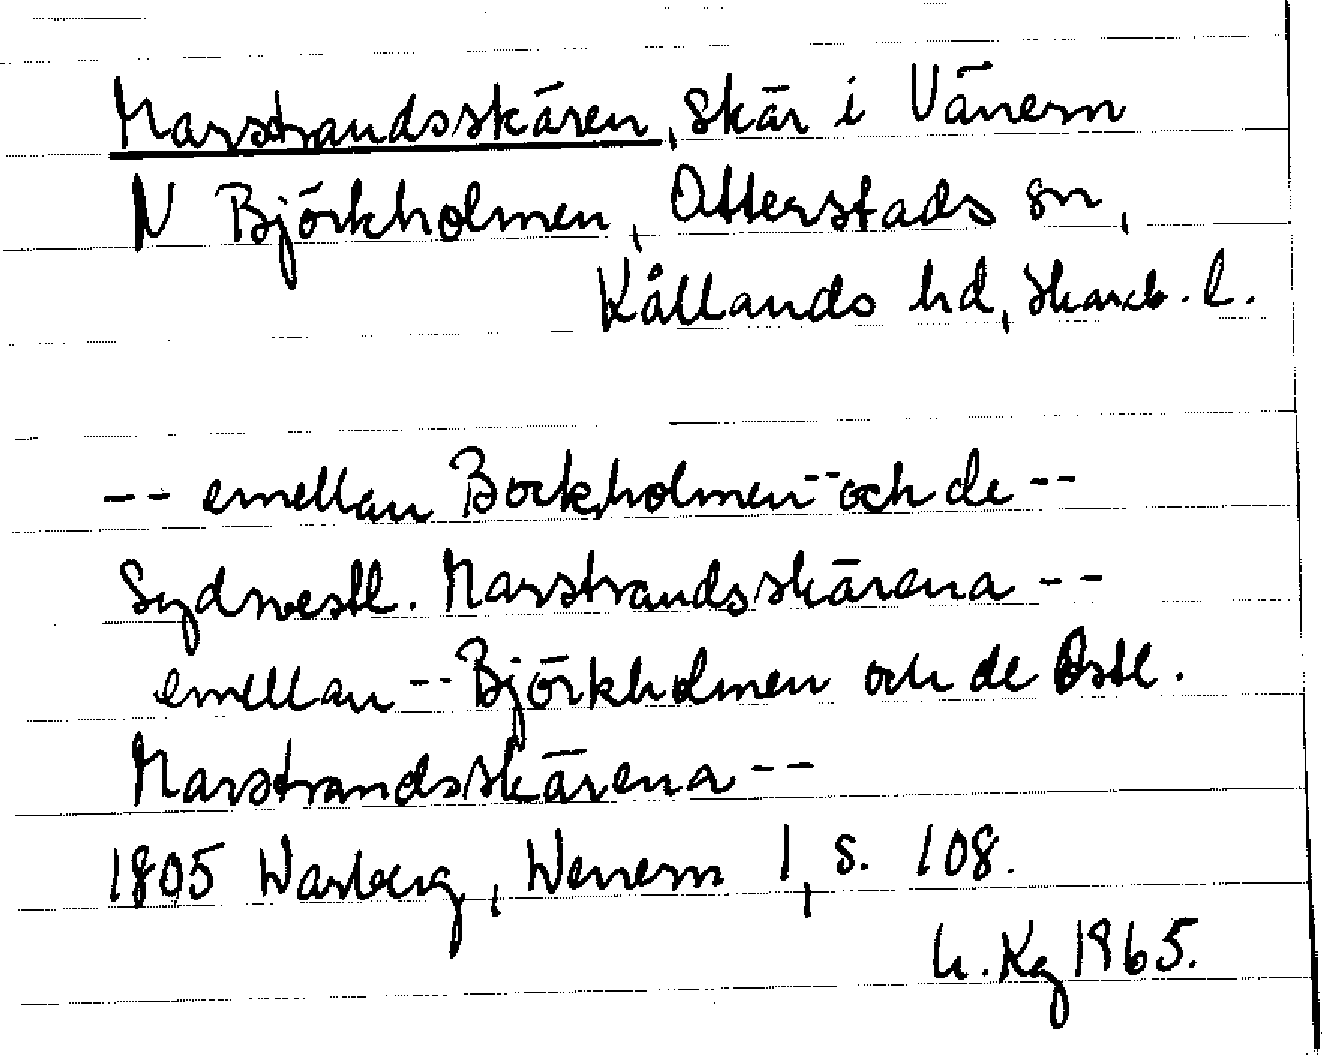 Marstrandsskären, skär i Vänern
N Björkholmen, Otterstads sn,
Kållands hd, Skarab. l.
-- emellan Bockholmen -- och de --
Sydwestl. Marstrandsskärena --
emellan -- Björkholmen och de Östl.
Marstrandsskärena --
1805 Warberg, Wenern 1, s. 108.
h. Kg 1965.